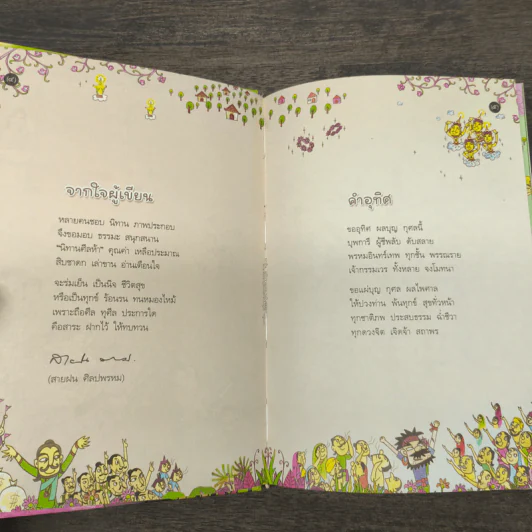 จากใจผู้เขียน
หลายคนชอบ นิทาน ภาพประกอบ
จึงขอมอบ ธรรมะ สนุกสนาน
"นิทานศีลห้า" คุณค่า เหลือประมาณ
สืบชาดก เล่าขาน อ่านเตือนใจ
จะร่มเย็น เป็นนิจ ชีวิตสุข
หรือเป็นทุกข์ ร้อนรน ทนหมองไหม้
เพราะถือศีล ทุศีล ประการใด
คือสาระ ฝากไว้ ให้ทบทวน
(สายฝน ศิลปพรหม)
คำอุทิศ
ขออุทิศ ผลบุญ กุศลนี้
บุพการี ผู้ชีพลับ ดับสลาย
พรหมอินทร์เทพ ทุกชั้น พรรณราย
เจ้ากรรมเวร ทั้งหลาย จงโมทนา
ขอแผ่บุญ กุศล ผลไพศาล
ให้ปวงท่าน พ้นทุกข์ สุขทั่วหน้า
ทุกชาติภพ ประสบธรรม ฉ่ำชีวา
ทุกดวงจิต เจิดจ้า สถาพร